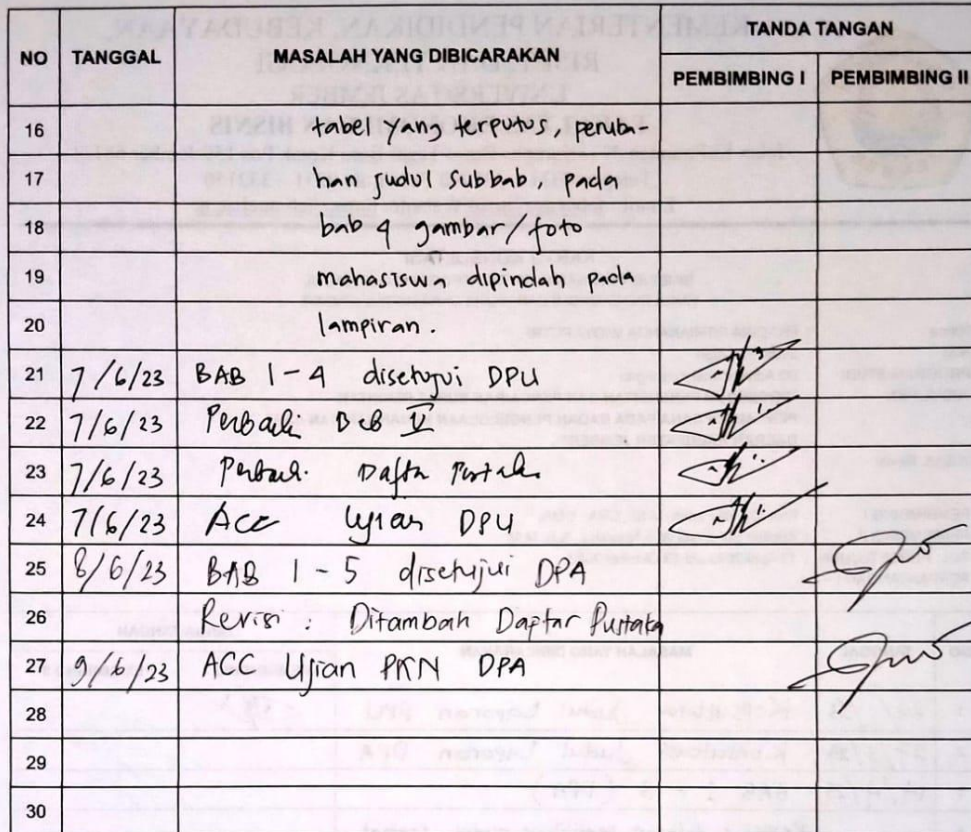 NO TANGGAL MASALAH YANG DIBICARAKAN TANDA TANGAN
PEMBIMBING I PEMBIMBING II
16 tabel yang terputus, peruba-
17 han judul subbab, pada
18 bab 4 gambar/foto
19 mahasiswa dipindah pada
20 lampiran.
21 7/6/23 BAB 1-4 disetujui DPU
22 7/6/23 Perbaiki Bab
23 7/6/23 Perbaiki Daftar Pustaka
24 7/6/23 Acc Ujian DPU
25 8/6/23 BAB 1-5 disetujui DPA
26 Revisi : Ditambah Daftar Pustaka
27 9/6/23 ACC Ujian PKN DPA
28
29
30